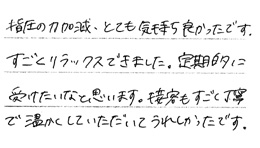 指圧の力加減、とても気持ち良かったです.
すごくリラックスできました。定期的に
受けたいなと思います。接客もすごく丁寧
で温かくしていただいてうれしかったです。